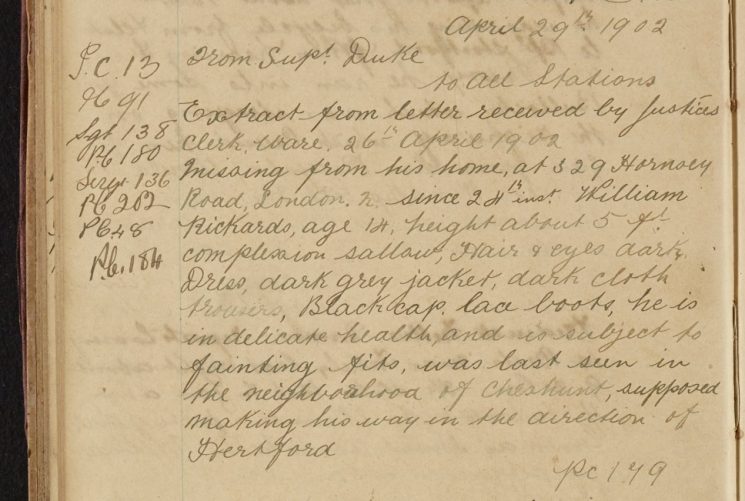 April 29th 1902
P.C. 13
From Supt Duke
to all Stations
Pc 91
Extract from letter received by Justices
Sgt 138
Clerk, Ware, 26th April 1902
Pc 180
Missing from his home, at 329 Hornsey
Sergt 136
Road, London. N. since 24th inst. William
Pc 202
Rickards, age 14, height about 5 ft
Pc 48
complexion sallow, Hair & eyes dark,
Pc. 184
Dress, dark grey jacket, dark cloth
trousers, Black cap. lace boots, he is
in delicate health and is subject to
fainting fits, was last seen in
the neighborhood of Cheshunt, supposed
making his way in the direction of
Hertford
Pc 179